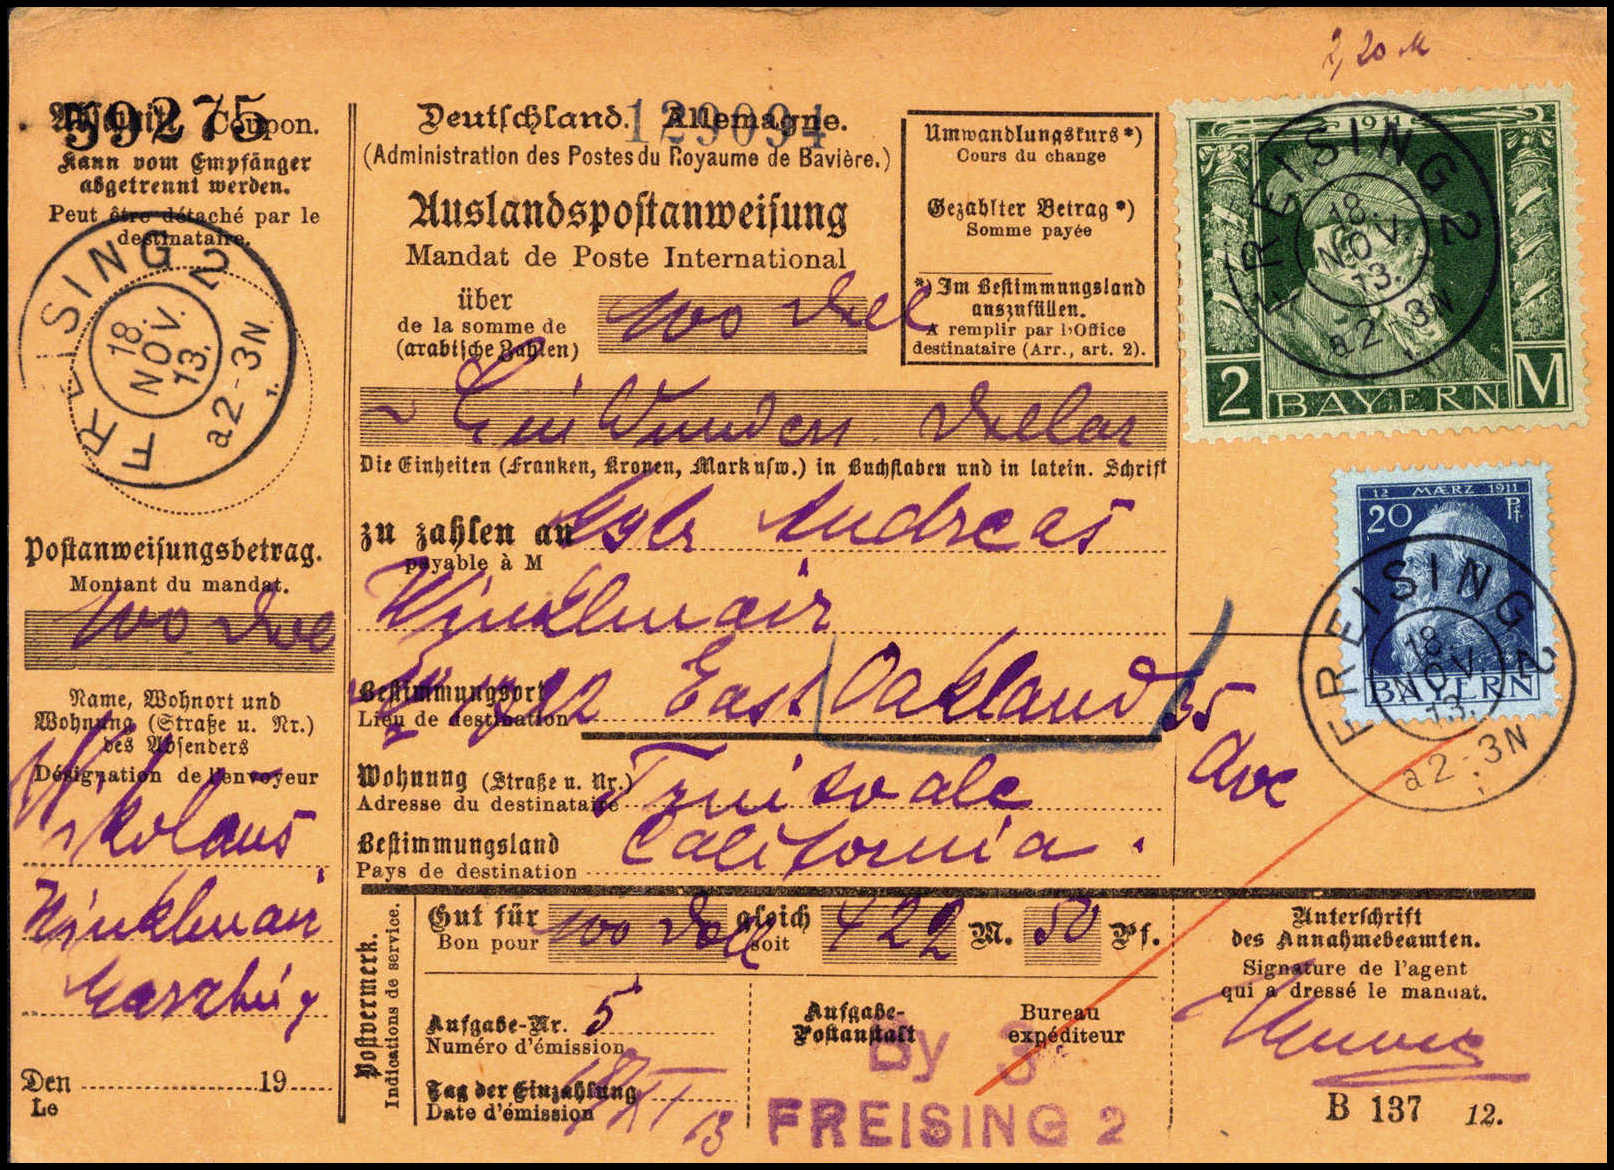 2,20 M
59275
Abschnitt Coupon.
Kann vom Empfänger
abgetrennt werden.
Peut être détaché par le
destinataire.
FREISING 2
18.
NOV.
13.
a2-3N
1.
Postanweisungsbetrag.
Montant du mandat.
100 Doll
Name, Wohnort und
Wohnung (Straße u. Nr.)
des Absenders
Désignation de l'envoyeur
Nikolaus
Winklmair
Den 19
Le
Deutschland. Allemagne.
129094
(Administration des Postes du Royaume de Bavière.)
Auslandspostanweisung
Mandat de Poste International
über
de la somme de
(arabische Zahlen)
100 Doll
Ein Hundert Dollar
Die Einheiten (Franken, Kronen, Mark usw.) in Buchstaben und in latein. Schrift
zu zahlen an
payable à M
Andreas
Winklmair
Bestimmungsort
Lieu de destination
East Oakland 35
Wohnung (Straße u. Nr.)
Adresse du destinataire
Fruitvale Ave
Bestimmungsland
Pays de destination
California.
Umwandlungskurs*)
Cours du change
Gezahlter Betrag*)
Somme payée
*) Im Bestimmungsland
auszufüllen.
A remplir par l'Office
destinataire (Arr., art. 2).
1911
2 BAYERN M
FREISING 2
18.
NOV.
13.
a2-3N
12 MÆRZ 1911
20 Pf
BAYERN
FREISING 2
18.
NOV.
13.
a2-3N
Postvermerk.
Indications de service.
Gut für 100 Doll gleich 422 M. 50 Pf.
Bon pour soit
Aufgabe-Nr. 5
Numéro d'émission
Tag der Einzahlung
Date d'émission
18/XI 13
Aufgabe-
Postanstalt
Bureau
expéditeur
By 3
FREISING 2
Unterschrift
des Annahmebeamten.
Signature de l'agent
qui a dressé le mandat.
B 137 12.